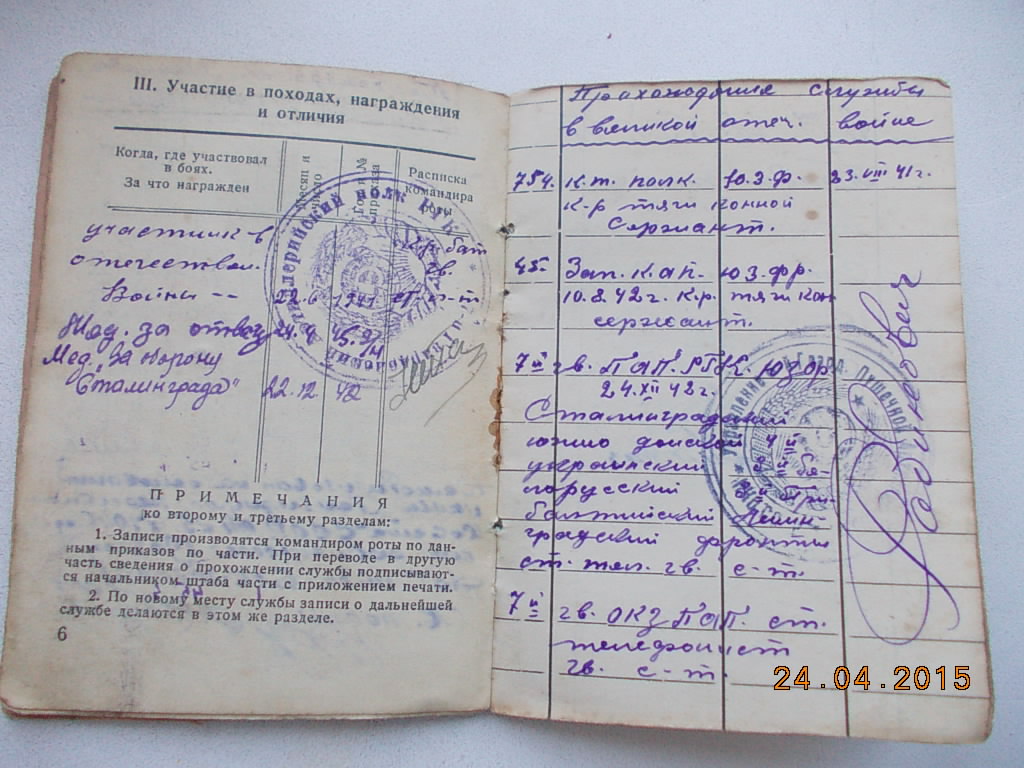 III. Участие в походах, награждения
и отличия
Когда, где участвовал
в боях.
За что награжден
Месяц и
число
Год и №
приказа
Расписка
командира
роты
участник в
отечествен.
Войны -- 22.6 1941
Мед. за отвагу 24.4
Мед. за оборону
"Сталинграда" 22.12 42
ПРИМЕЧАНИЯ
ко второму и третьему разделам:
1. Записи производятся командиром роты по дан-
ным приказов по части. При переводе в другую
часть сведения о прохождении службы подписывают-
ся начальником штаба части с приложением печати.
2. По новому месту службы записи о дальнейшей
службе делаются в этом же разделе.
6
Прохождения службы
в великой отеч. войне
754. к.т. полк. Ю.З.ф. 23.VIII 41г.
к-р тяги конной
Сержиант.
45. Зап. к.а.п. ю.з.фр.
10.8.42г. к.р. тяги кон
сержиант.
7й гв. ПАП. РГК.
24.XII 42г.
Сталинградский
южно донской
украинский
балтийский Ленин-
градский фаронты
ст. тел. гв. с-т.
7й гв. ОКЗПАП. ст.
телефонист
гв. с-т.
24.04.2015